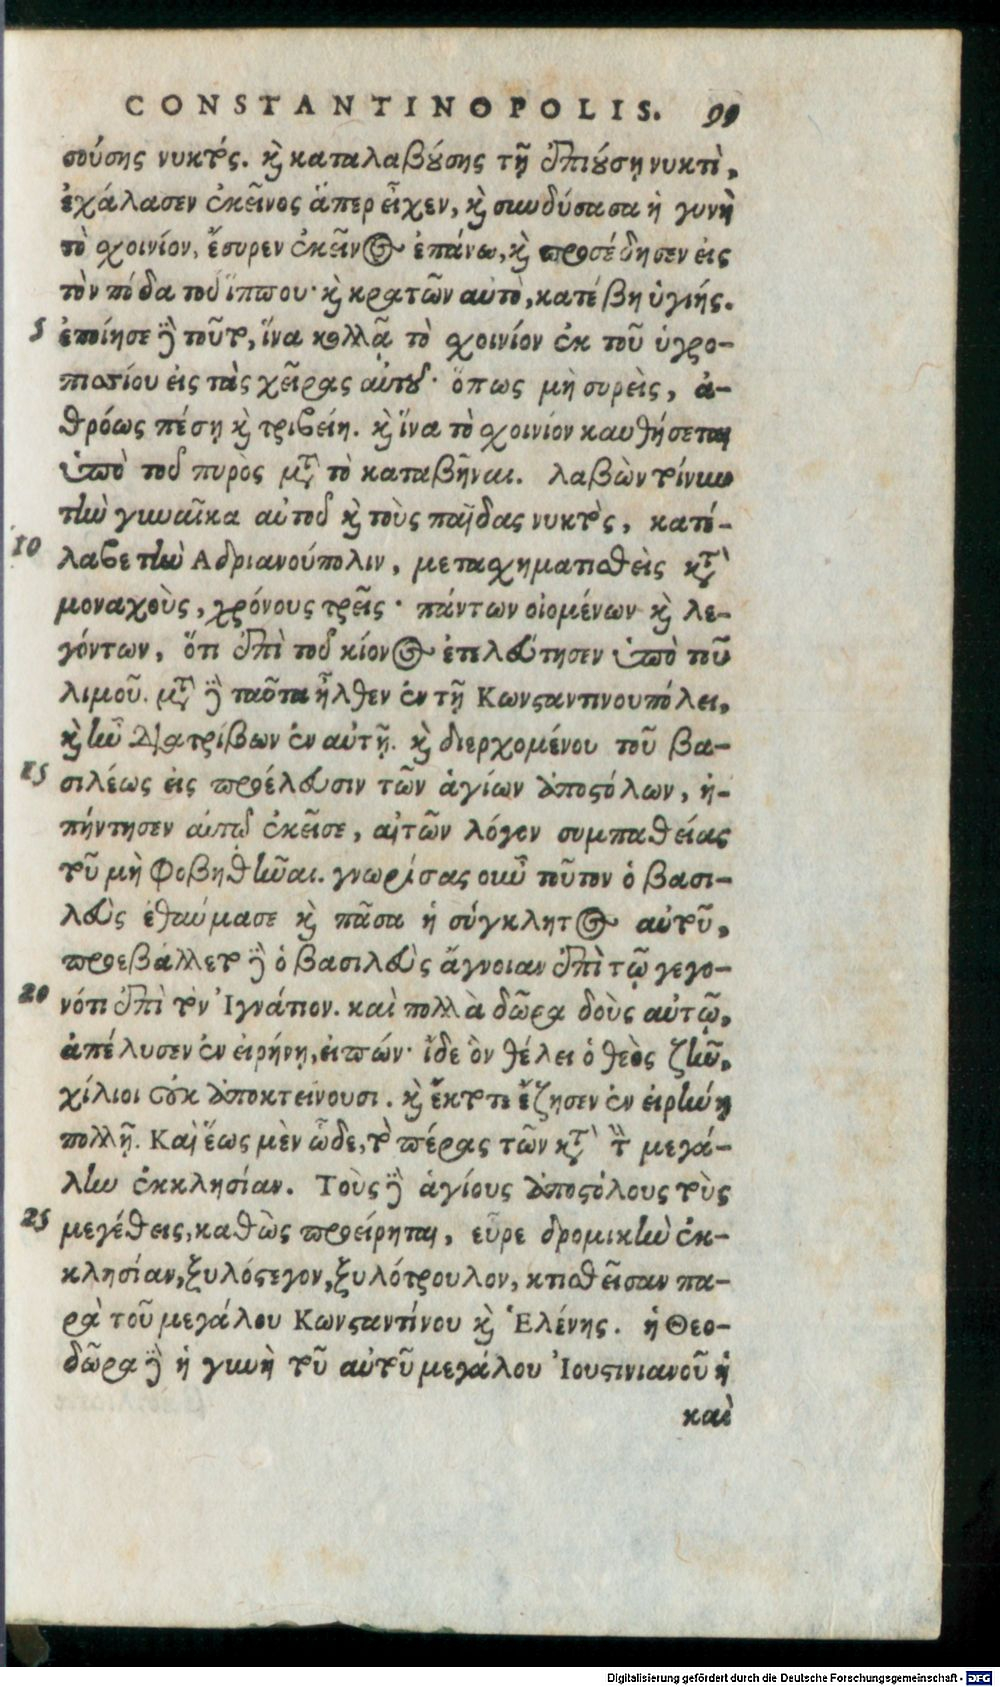 CONSTANTINOPOLIS. 99
σούσης νυκτός. καὶ καταλαβούσης τῇ ἐπιούσῃ νυκτὶ,
ἐχάλασεν ἐκεῖνος ἅπερ εἶχεν, καὶ συνδύσασα ἡ γυνὴ
τὸ σχοινίον, ἔσυρεν ἐκεῖνος ἐπάνω, καὶ προσέδησεν εἰς
τὸν πόδα τοῦ ἵππου· καὶ κρατῶν αὐτὸ, κατέβη ὑγιής.
5 ἐποίησε δὲ τοῦτο, ἵνα κολλᾷ τὸ σχοινίον ἐκ τοῦ ὑγρο-
πισσίου εἰς τὰς χεῖρας αὐτοῦ· ὅπως μὴ συρεὶς, ἀ-
θρόως πέσῃ καὶ τριβείη. καὶ ἵνα τὸ σχοινίον καυθήσεται
ὑπὸ τοῦ πυρὸς μετὰ τὸ καταβῆναι. λαβὼν τοίνυν
τὴν γυναῖκα αὐτοῦ καὶ τοὺς παῖδας νυκτὸς, κατέ-
10 λαβε τὴν Αδριανούπολιν, μετασχηματισθεὶς κατὰ
μοναχοὺς, χρόνους τρεῖς· πάντων οἰομένων καὶ λε-
γόντων, ὅτι ἐπὶ τοῦ κίονος ἐτελεύτησεν ὑπὸ τοῦ
λιμοῦ. μετὰ δὲ ταῦτα ἦλθεν ἐν τῇ Κωνσταντινουπόλει,
καὶ ἦν διατρίβων ἐν αὐτῇ. καὶ διερχομένου τοῦ βα-
15 σιλέως εἰς προέλευσιν τῶν ἁγίων ἀποστόλων, ἠ-
πήντησεν αὐτῷ ἐκεῖσε, αἰτῶν λόγον συμπαθείας
τοῦ μὴ φοβηθῆναι. γνωρίσας οὖν τοῦτον ὁ βασι-
λεὺς ἐθαύμασε καὶ πᾶσα ἡ σύγκλητος αὐτοῦ,
προεβάλλετο δὲ ὁ βασιλεὺς ἄγνοιαν ἐπὶ τῷ γεγο-
20 νότι ἐπὶ τὸν Ἰγνάτιον. καὶ πολλὰ δῶρα δοὺς αὐτῷ,
ἀπέλυσεν ἐν εἰρήνῃ, εἰπών· ἴδε ὃν θέλει ὁ θεὸς ζῆν,
χίλιοι οὐκ ἀποκτείνουσι. καὶ ἔκτοτε ἔζησεν ἐν εἰρήνῃ
πολλῇ. Καὶ ἕως μὲν ὧδε, τὸ πέρας τῶν κατὰ τὴν μεγά-
λην ἐκκλησίαν. Τοὺς δὲ ἁγίους ἀποστόλους τοὺς
25 μεγέθεις, καθὼς προείρηται, εὗρε δρομικὴν ἐκ-
κλησίαν, ξυλόστεγον, ξυλότρουλον, κτισθεῖσαν πα-
ρὰ τοῦ μεγάλου Κωνσταντίνου καὶ Ἑλένης. ἡ Θεο-
δῶρα δὲ ἡ γυνὴ τοῦ αὐτοῦ μεγάλου Ἰουστινιανοῦ ἡ
καὶ
Digitalisierung gefördert durch die Deutsche Forschungsgemeinschaft - DFG